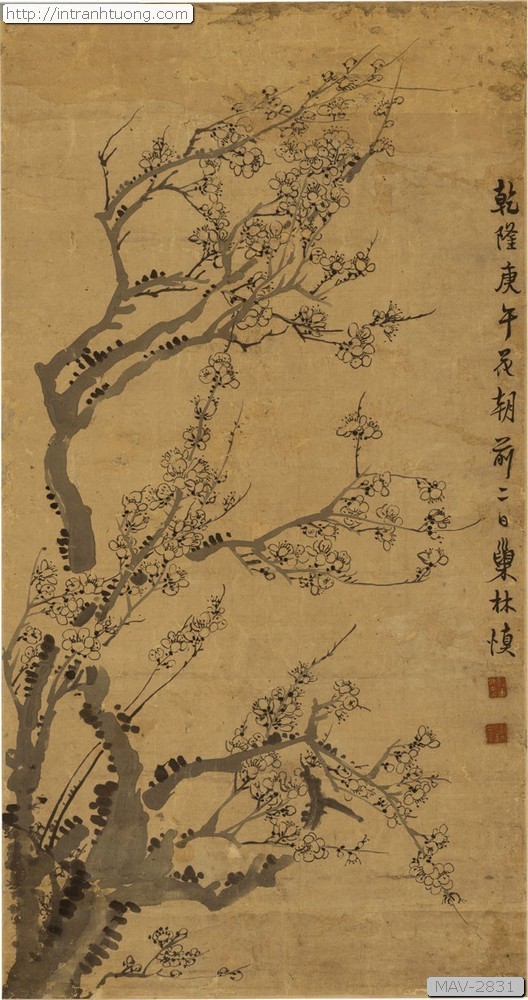 http://intranhtuong.com/
乾隆庚午花朝前二日巢林慎
MAV-2831